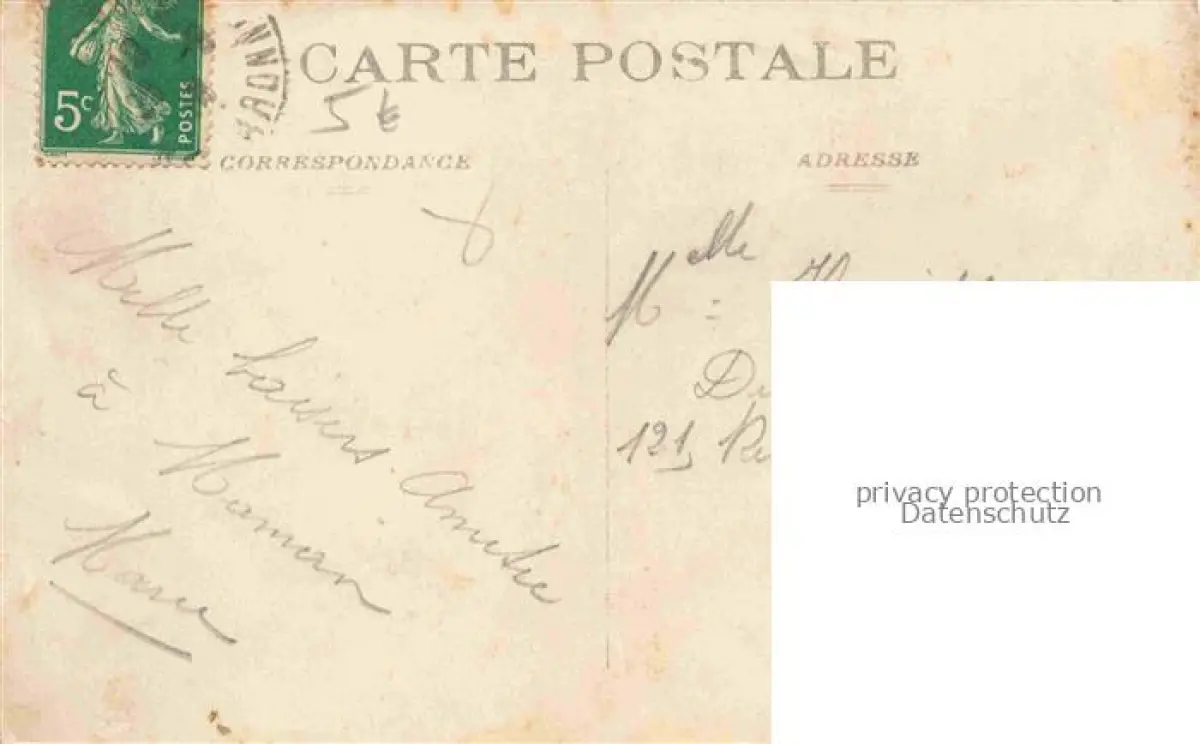 5c
POSTES
CARTE POSTALE
5€
CORRESPONDANCE
ADRESSE
Mille baisers
à Maman
Melle
121, 
privacy protection
Datenschutz